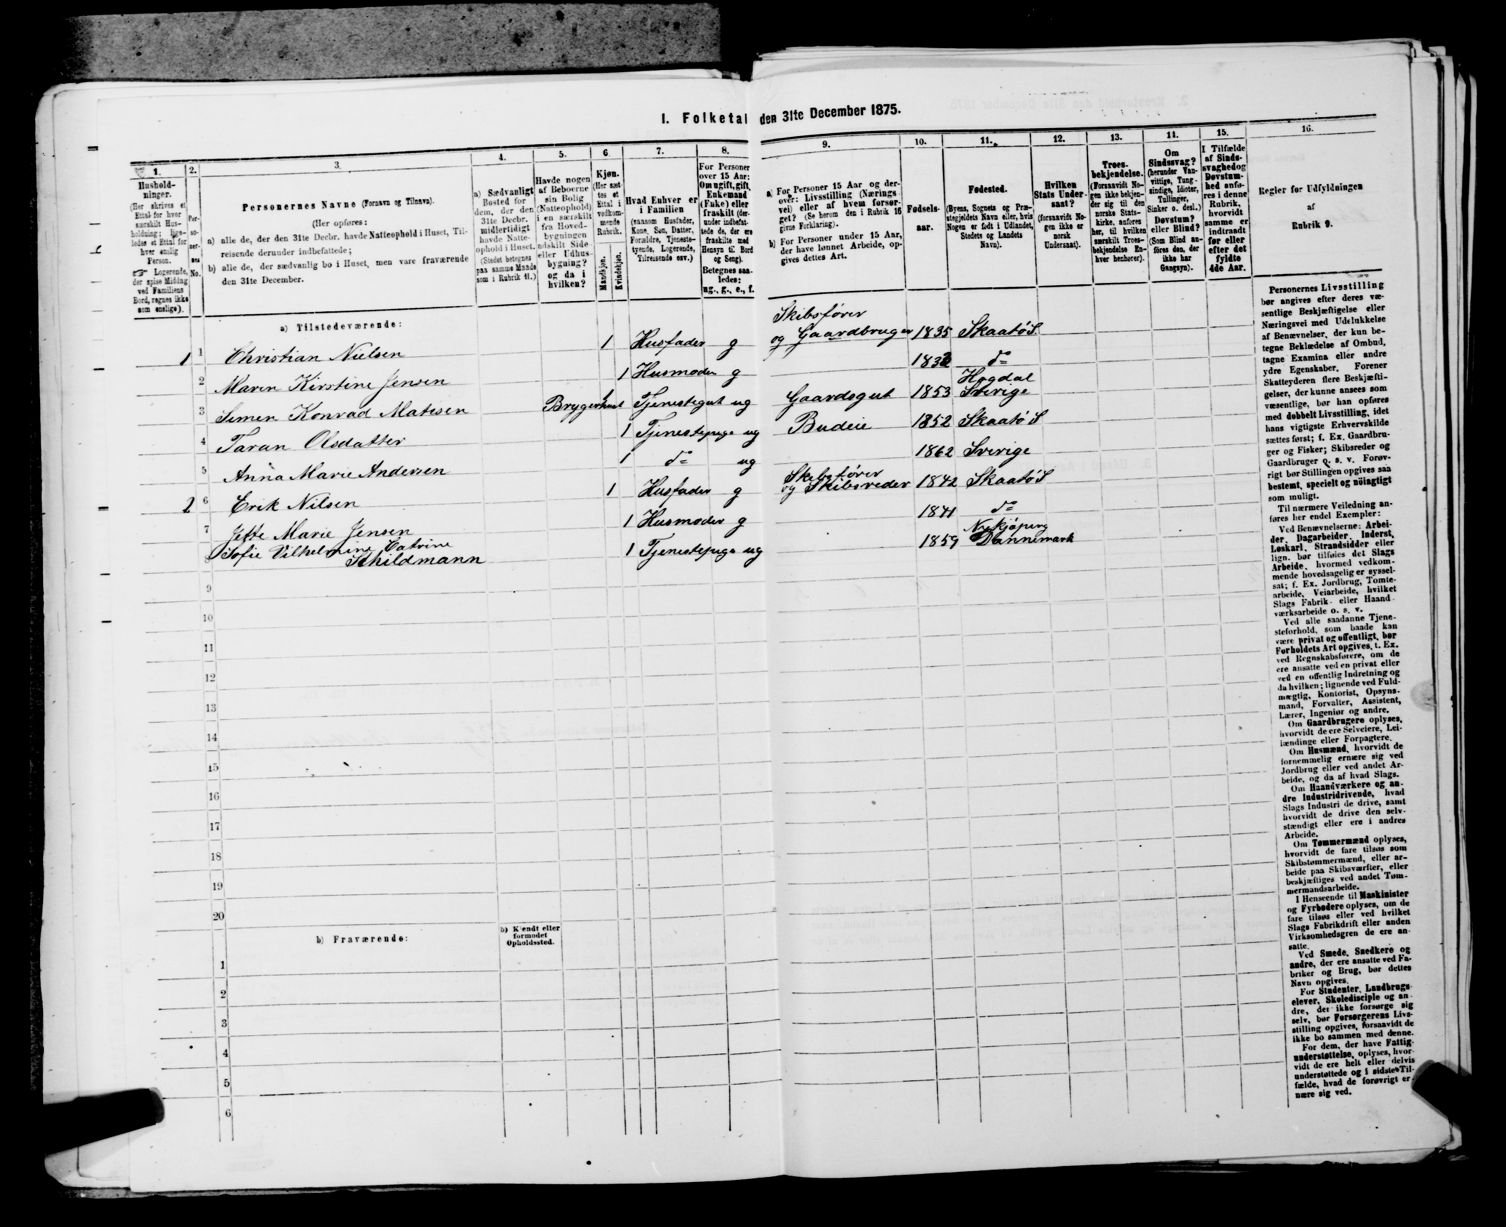 I. Folketal den 31te December 1875.
1.
Hushold-
ninger.
(Her skrives et
Ettal for hver
særskilt Hus-
holdning; lige-
ledes et Ettal for
hver enslig
Person.
Logerende,
der spise Middag
ved Familiens
Bord, regnes ikke
som enslige).
2.
Per-
so-
ner-
nes
No.
3.
Personernes Navne (Fornavn og Tilnavn).
(Her opføres:
a) alle de, der den 31te Decbr. havde Natteophold i Huset, Til-
reisende derunder indbefattede;
b) alle de, der sædvanlig bo i Huset, men vare fraværende
den 31te December.
4.
a) Sædvanligt
Bosted for
dem, der den
31te Decbr.
midlertidigt
havde Natte-
ophold i Huset.
(Stedet betegnes
paa samme Maade
som i Rubrik 11.)
5.
Havde nogen
af Beboerne
sin Bolig
(Natteophold)
i en særskilt
fra Hoved-
bygningen
adskilt Side-
eller Udhus-
bygning?
og da i
hvilken?
6.
Kjøn.
(Her sæt-
tes et
Ettal i
vedkom-
mende
Rubrik.
Mandkjøn.
Kvindekjøn.
7.
Hvad Enhver er
i Familien
(saasom Husfader,
Kone, Søn, Datter,
Forældre, Tjeneste-
tyende, Logerende,
Tilreisende osv.)
8.
For Personer
over 15 Aar:
Om ugift, gift,
Enkemand
(Enke) eller
fraskilt (der-
under indbefat-
tede de, der ere
fraskilte med
Hensyn til Bord
og Seng).
Betegnes saa-
ledes:
ug., g., e., f.
9.
a) For Personer 15 Aar og der-
over: Livsstilling (Nærings-
vei) eller af hvem forsør-
get? (Se herom den i Rubrik 16
givne Forklaring).
b) For Personer under 15 Aar,
der have lønnet Arbeide, op-
gives dettes Art.
10.
Fødsels-
aar.
11.
Fødested.
(Byens, Sognets og Præ-
stegjeldets Navn eller, hvis
Nogen er født i Udlandet,
Stedets og Landets
Navn).
12.
Hvilken
Stats Under-
saat?
(forsaavidt No-
gen ikke er
norsk
Undersaat).
13.
Troes-
bekjendelse.
(Forsaavidt No-
gen ikke bekjen-
der sig til den
norske Stats-
kirke, anføres
her, til hvilken
særskilt Troes-
bekjendelse En-
hver henhører).
14.
Om
Sindssvag?
(herunder Van-
vittige, Tung-
sindige, Idioter,
Tullinger,
Sinker o. desl.)
Døvstum?
eller Blind?
(Som Blind an-
føres den, der
ikke har
Gangsyn).
15.
I Tilfælde
af Sinds-
svaghed og
Døvstum-
hed anfø-
res i denne
Rubrik,
hvorvidt
samme er
indtraadt
før eller
efter det
fyldte
4de Aar.
16.
Regler for Udfyldningen
af
Rubrik 9.
a) Tilstedeværende:
1 1 Christian Nielsen 1 Husfader g Skibsfører og Gaardbruger 1835 Skaatø S.
2 Maren Kirstine Jensen 1 Husmoder g do
3 Simen Konrad Matisen Bryggerhuset 1 Tjenestegut ug Gaardsgut 1853 Hogdal Sverige
4 Taran Olsdatter 1 Tjenestepige ug Budeie 1852 Skaatø S
5 Anna Marie Andersen 1 do ug 1862 Sverige
2 6 Erik Nilsen 1 Husfader g Skibsfører og Skibsreder 1842 Skaatø S
7 Marie Jensen 1 Husmoder g 1841 do
8 Sofie Vilhelmine Catrine Schildmann 1 Tjenestepige ug 1859 Nykjøping Dannemark
9
10
11
12
13
14
15
16
17
18
19
20
b) Fraværende:
b) Kjendt eller
formodet
Opholdssted.
1
2
3
4
5
6
Personernes Livsstilling
bør angives efter deres væ-
sentlige Beskjæftigelse eller
Næringsvei med Udelukkelse
af Benævnelser, der kun be-
tegne Beklædelse af Ombud,
tagne Examina eller andre
ydre Egenskaber. Forener
Skatteyderen flere Beskjæfti-
gelser, der kunne ansees som
væsentlige, bør han opføres
med dobbelt Livsstilling, idet
hans vigtigste Erhvervskilde
sættes først; f. Ex. Gaardbru-
ger og Fisker; Skibsreder og
Gaardbruger o. s. v. Forøv-
rigt bør Stillingen opgives saa
bestemt, specielt og nøiagtigt
som muligt.
Til nærmere Veiledning an-
føres her endel Exempler:
Ved Benævnelserne: Arbei-
der, Dagarbeider, Inderst,
Løskarl, Strandsidder eller
lign. bør tilføies det Slags
Arbeide, hvormed vedkom-
mende hovedsagelig er syssel-
sat; f. Ex. Jordbrug, Tomte-
arbeide, Veiarbeide, hvilket
Slags Fabrik- eller Haand-
værksarbeide o. s. v.
Ved alle saadanne Tjene-
steforhold, som baade kan
være privat og offentligt, bør
Forholdets Art opgives, f. Ex.
ved Regnskabsførere, om de
ere ansatte ved en privat eller
ved en offentlig Indretning og
da hvilken; lignende ved Fuld-
mægtig, Kontorist, Opsyns-
mand, Forvalter, Assistent,
Lærer, Ingeniør og andre.
Om Gaardbrugere oplyses,
hvorvidt de ere Selveiere, Lei-
lændinge eller Forpagtere.
Om Husmænd, hvorvidt de
fornemmelig ernære sig ved
Jordbrug eller ved andet Ar-
beide, og da af hvad Slags.
Om Haandværkere og an-
dre Industridrivende, hvad
Slags Industri de drive, samt
hvorvidt de drive den selv-
stændigt eller ere i andres
Arbeide.
Om Tømmermænd oplyses,
hvorvidt de fare tilsøs som
Skibstømmermænd, eller ar-
beide paa Skibsværfter, eller
beskjæftiges ved andet Tøm-
mermandsarbeide.
I Henseende til Maskinister
og Fyrbødere oplyses, om de
fare tilsøs eller ved hvilket
Slags Fabrikdrift eller anden
Virksomhedsgren de ere an-
satte.
Ved Smede, Snedkere og
andre, der ere ansatte ved Fa-
briker og Brug, bør dettes
Navn opgives.
For Studenter, Landbrugs-
elever, Skoledisciple og an-
dre, der ikke forsørge sig
selv, bør Forsørgerens Livs-
stilling opgives, forsaavidt de
ikke bo sammen med denne.
For dem, der have Fattig-
understøttelse, oplyses, hvor-
vidt de ere helt eller delvis
understøttede og i sidste Til-
fælde, hvad de forøvrigt er-
nære sig ved.